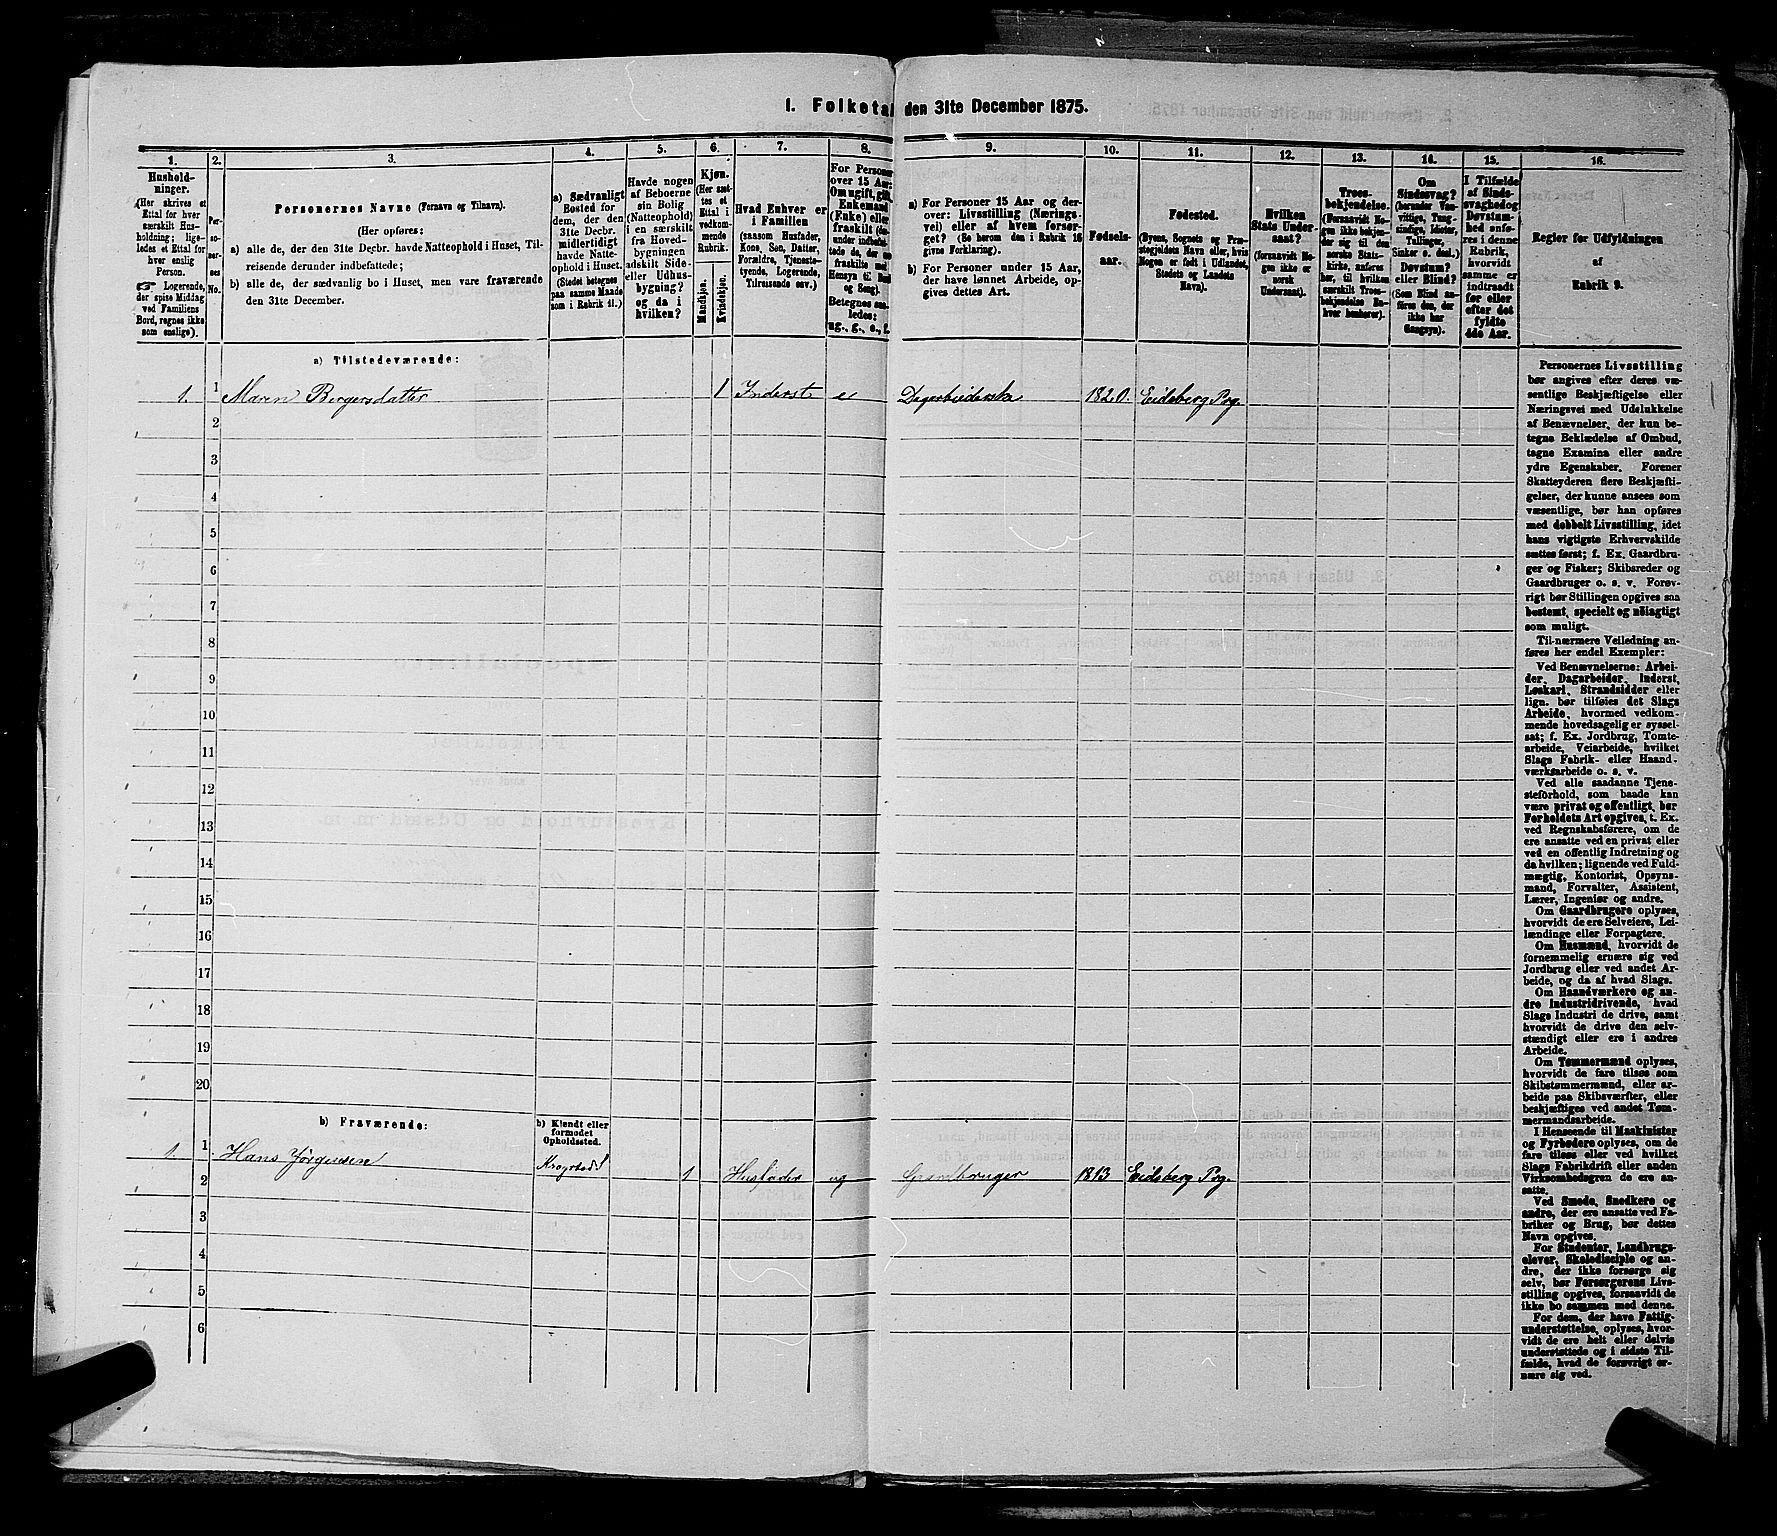 1. Folketal den 31te December 1875.
1.
2.
3.
4.
5.
6.
7.
8.
9.
10.
11.
12.
13.
14.
15.
16.
Hushold-
ninger.
(Her skrives et
Ettal for hver
særskilt Hus-
holdning; lige-
ledes et Ettal for
hver enslig
Person.
☞ Logerende,
der spise Middag
ved Familiens
Bord, regnes ikke
som enslige).
Per-
so-
ner-
nes
No.
Personernes Navne (Fornavn og Tilnavn).
(Her opføres:
a) alle de, der den 31te Decbr. havde Natteophold i Huset, Til-
reisende derunder indbefattede;
b) alle de, der sædvanlig bo i Huset, men vare fraværende
den 31te December.
a) Sædvanligt
Bosted for
dem, der den
31te Decbr.
midlertidigt
havde Natte-
ophold i Huset.
(Stedet betegnes
paa samme Maade
som i Rubrik 11.)
Havde nogen
af Beboerne
sin Bolig
(Natteophold)
i en særskilt
fra Hoved-
bygningen
adskilt Side-
eller Udhus-
bygning?
og da i
hvilken?
Kjøn.
(Her sæt-
tes et
Ettal i
vedkom-
mende
Rubrik.
Mandkjøn.
Kvindekjøn.
Hvad Enhver er
i Familien
(saasom Husfader,
Kone, Søn, Datter,
Forældre, Tjeneste-
tyende, Logerende,
Tilreisende osv.)
For Personer
over 15 Aar:
Omugift, gift,
Enkemand
(Enke) eller
fraskilt
Betegnes saa-
ledes:
ug., g., e., f.
a) For Personer 15 Aar og der-
over: Livsstilling (Nærings-
vei) eller af hvem forsør-
get? (Se herom den i Rubrik 16
givne Forklaring).
b) For Personer under 15 Aar,
der have lønnet Arbeide, op-
gives dettes Art.
Fødsels-
aar.
Fødested.
(Byens, Sognets og Præ-
stegjeldets Navn eller, hvis
Nogen er født i Udlandet,
Stedets og Landets
Navn).
Hvilken
Stats Under-
saat?
(forsaavidt No-
gen ikke er
norsk
Undersaat).
Troes-
bekjendelse.
(Forsaavidt No-
gen ikke bekjen-
der sig til den
norske Stats-
kirke, anføres
her, til hvilken
særskilt Troes-
bekjendelse En-
hver henhører).
Om
Sindssvag?
(herunder Van-
vittige, Tung-
sindige, Idioter,
Tullinger,
Sinker o. desl.)
Døvstum?
eller Blind?
(Som Blind an-
føres den, der
ikke har
Gangsyn).
I Tilfælde
af Sinds-
svaghed og
Døvstum-
hed anfø-
res i denne
Rubrik,
hvorvidt
samme er
indtraadt
før eller
efter det
fyldte
4de Aar.
Regler for Udfyldningen
af
Rubrik 9.
a) Tilstedeværende:
1. 1 Maren Bergersdatter 1 Inderst e Dagarbeiderske 1820. Eidsberg Prg.
2
3
4
5
6
7
8
9
10
11
12
13
14
15
16
17
18
19
20
b) Fraværende:
b) Kjendt eller
formodet
Opholdssted.
1. 1 Hans Jørgensen Krogstad 1 Husfader ug Gaardbruger 1813 Eidsberg Prg.
2
3
4
5
6
Personernes Livsstilling
bør angives efter deres væ-
sentlige Beskjæftigelse eller
Næringsvei med Udelukkelse
af Benævnelser, der kun be-
tegne Beklædelse af Ombud,
tagne Examina eller andre
ydre Egenskaber. Forener
Skatteyderen flere Beskjæfti-
gelser, der kunne ansees som
væsentlige, bør han opføres
med dobbelt Livsstilling, idet
hans vigtigste Erhvervskilde
sættes først; f. Ex. Gaardbru-
ger og Fisker; Skibsreder og
Gaardbruger o. s. v. Forøv-
rigt bør Stillingen opgives saa
bestemt, specielt og nøiagtigt
som muligt.
Til nærmere Veiledning an-
føres her endel Exempler:
Ved Benævnelserne: Arbei-
der, Dagarbeider, Inderst,
Løskarl, Strandsidder eller
lign. bør tilføies det Slags
Arbeide, hvormed vedkom-
mende hovedsagelig er syssel-
sat; f. Ex. Jordbrug, Tomte-
arbeide, Veiarbeide, hvilket
Slags Fabrik- eller Haand-
værksarbeide o. s. v.
Ved alle saadanne Tjene-
steforhold, som baade kan
være privat og offentligt, bør
Forholdets Art opgives, t. Ex.
ved Regnskabsførere, om de
ere ansatte ved en privat eller
ved en offentlig Indretning og
da hvilken; lignende ved Fuld-
mægtig, Kontorist, Opsyns-
mand, Forvalter, Assistent,
Lærer, Ingeniør og andre.
Om Gaardbrugere oplyses,
hvorvidt de ere Selveiere, Lei-
lændinge eller Forpagtere.
Om Husmænd, hvorvidt de
fornemmelig ernære sig ved
Jordbrug eller ved andet Ar-
beide, og da af hvad Slags.
Om Haandværkere og an-
dre Industridrivende, hvad
Slags Industri de drive, samt
hvorvidt de drive den selv-
stændigt eller ere i andres
Arbeide.
Om Tømmermænd oplyses,
hvorvidt de fare tilsøs som
Skibstømmermænd, eller ar-
beide paa Skibsværfter, eller
beskjæftiges ved andet Tøm-
mermandsarbeide.
I Henseende til Maskinister
og Fyrbødere oplyses, om de
fare tilsøs eller ved hvilket
Slags Fabrikdrift eller anden
Virksomhedsgren de ere an-
satte.
Ved Smede, Snedkere og
andre, der ere ansatte ved Fa-
briker og Brug, bør dettes
Navn opgives.
For Studenter, Landbrugs-
elever, Skoledisciple og an-
dre, der ikke forsørge sig
selv, bør Forsørgerens Livs-
stilling opgives, forsaavidt de
ikke bo sammen med denne.
For dem, der have Fattig-
understøttelse, oplyses, hvor-
vidt de ere helt eller delvis
understøttede og i sidste Til-
fælde, hvad de forøvrigt er-
nære sig ved.